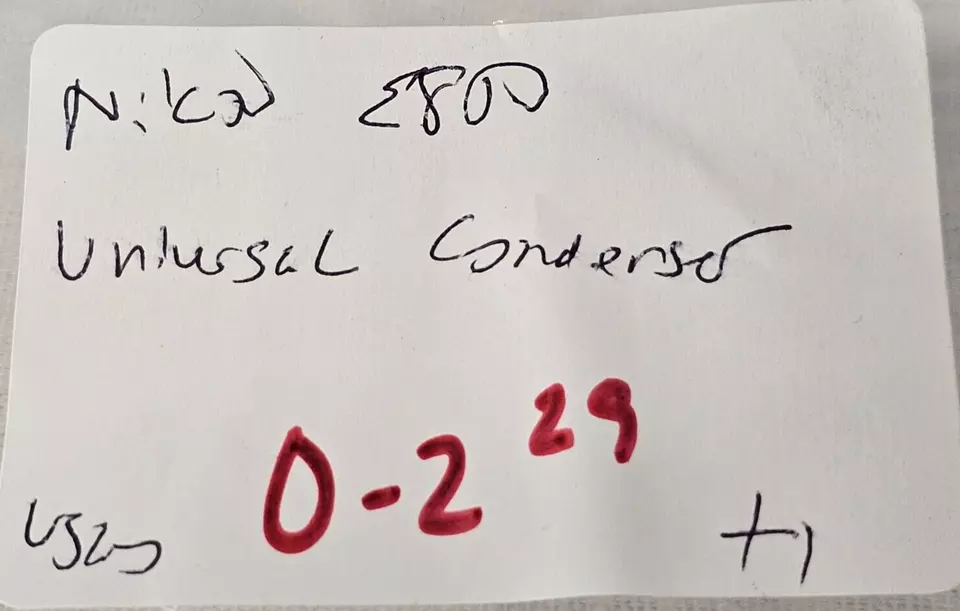 Nikon E800
Universal Condenser
0-2 29
+1